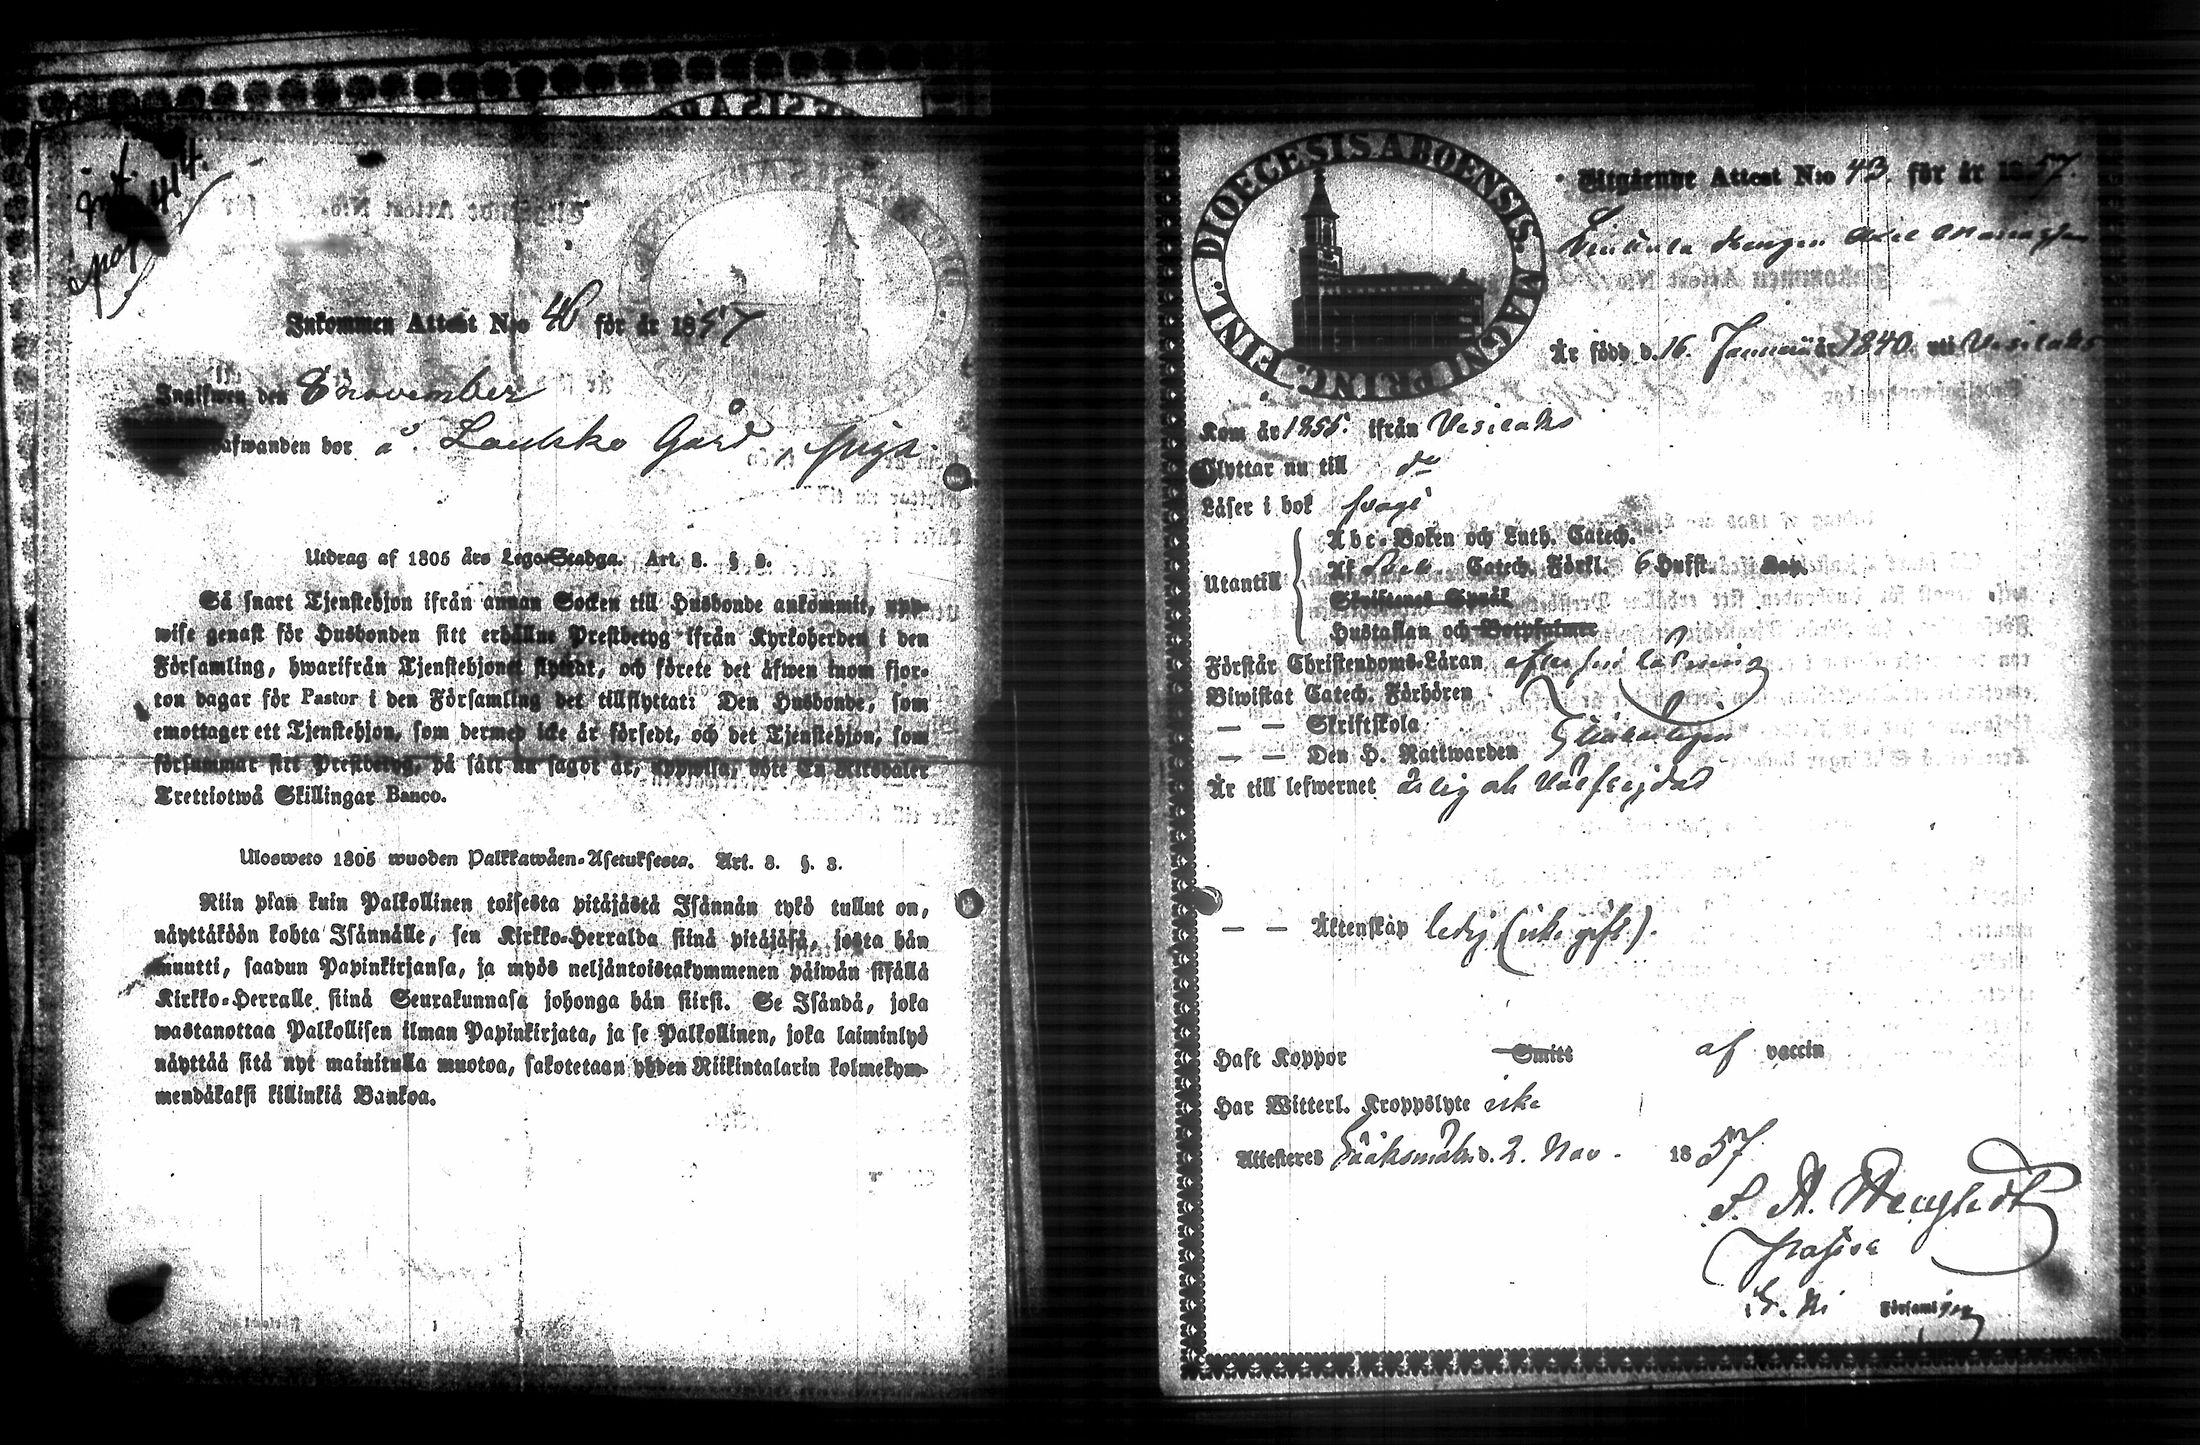 Int.
pag 414.
Inkommen Attest N:o 46 för år 1857
Ingifwen den 8 november
afwanden bor å Laukko Gård, piga.
Utdrag af 1805 års Lego-Stadga. Art. 3. § 3.
Så snart Tjenstehjon ifrån annan Socken till Husbonde ankommit, upp-
wise genast för Husbonden sitt erhållne Prestbetyg ifrån Kyrkoherden i den
Församling, hwarifrån Tjenstehjonet flyttat, och förete det äfwen inom fjor-
ton dagar för Pastor i den Församling det tillflyttat: Den Husbonde, som
emottager ett Tjenstehjon, som dermed icke är försedt, och det Tjenstehjon, som
försummar sitt Prestbetyg, på sätt nu sagdt är, uppwisa, böte En Riksdaler
Trettiotwå Skillingar Banco.
Ulosweto 1805 wuoden Palkkawäen-Asetuksesta. Art. 3. §. 3.
Niin pian kuin Palkollinen toisesta pitäjästä Isännän tykö tullut on,
näyttäköön kohta Isännälle, sen Kirkko-Herralda siinä pitäjäsä, josta hän
muutti, saadun Papinkirjansa, ja myös neljäntoistakymmenen päiwän sisällä
Kirkko-Herralle siinä Seurakunnasa johonga hän siirsi. Se Isändä, joka
wastanottaa Palkollisen ilman Papinkirjata, ja se Palkollinen, joka laiminlyö
näyttää sitä nyt mainitulla muotoa, sakotetaan yhden Riikintalarin kolmekym-
mendäkaksi killinkiä Bankoa.
DIOECESIS ABOENSIS. MAGNI PRINC. FINL.
Utgående Attest N:o 43. för år 1857.
Drengen
Är född d. 16. Januarii år 1840. uti Vesilaks
Kom år 1855. ifrån Vesilaks
Flyttar nu till do
Läser i bok svagt
Utantill
Abc-Boken och Luth. Catech.
Af Catech. Förkl. 6 Hufst. Kap.
Skriftenes Språk
Hustaflan och Botpsalmer
Förstår Christendoms-Läran efter sin läsning
Biwistat Catech. Förhören
— — Skriftskola
— — Den H. Nattwarden
Är till lefwernet ärlig och Välfrejdad
— — Äktenskap ledig (icke gift).
Haft Koppor Smitt af vaccin
Har Witterl. Kroppslyte icke
Attesteres Sääksmäki d. 2. Nov. 1857
Församlingen